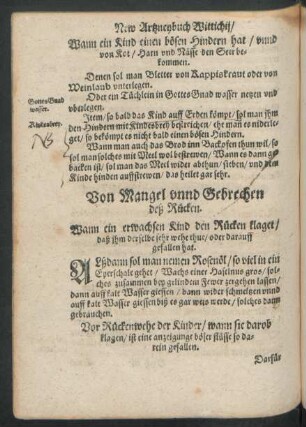 New Artzneybuch Wittichij/
Wann ein Kind einen bösen Hindern hat / vnnd
von Kot / Harn vnd Nässe den Seer be-
kommen.
Denen sol man Bletter von Kappiskraut oder von
Weinlaub vnterlegen.
Oder ein Tüchlein in Gottes Gnad wasser netzen vnd
vberlegen.
Gottes Gnad
wasser.
Item / so bald das Kind auff Erden kömpt / sol man jhm
den Hindern mit Kindesbreß bestreichen / ehe man es niderle-
get / so bekömpt es nicht bald einen bösen Hindern.
Wann man auch das Brod inn Backofen thun wil / so
sol man solches mit Meel wol bestrewen / Wann es dann ge-
backen ist / sol man das Meel wider abthun / sieben / vnd dem
Kinde hinden auffstrewen / das heilet gar sehr.
Von Mangel vnnd Gebrechen
deß Rücken.
Wann ein erwachsen Kind den Rücken klaget /
daß jhm derselbe sehr wehe thue / oder darauff
gefallen hat.
Alßdann sol man nemen Rosenöl / so viel in ein
Eyerschale gehet / Wachs einer Haselnus gros / sol-
ches zusammen bey gelindem Fewer zergehen lassen /
dann auff kalt Wasser giessen / dann wider schmeltzen vnnd
auff kalt Wasser giessen biß es gar weis werde / solches dann
gebrauchen.
Vor Rückenwehe der Kinder / wann sie darob
klagen / ist eine anzeigunge böser flüsse so da-
rein gefallen.
Darfür